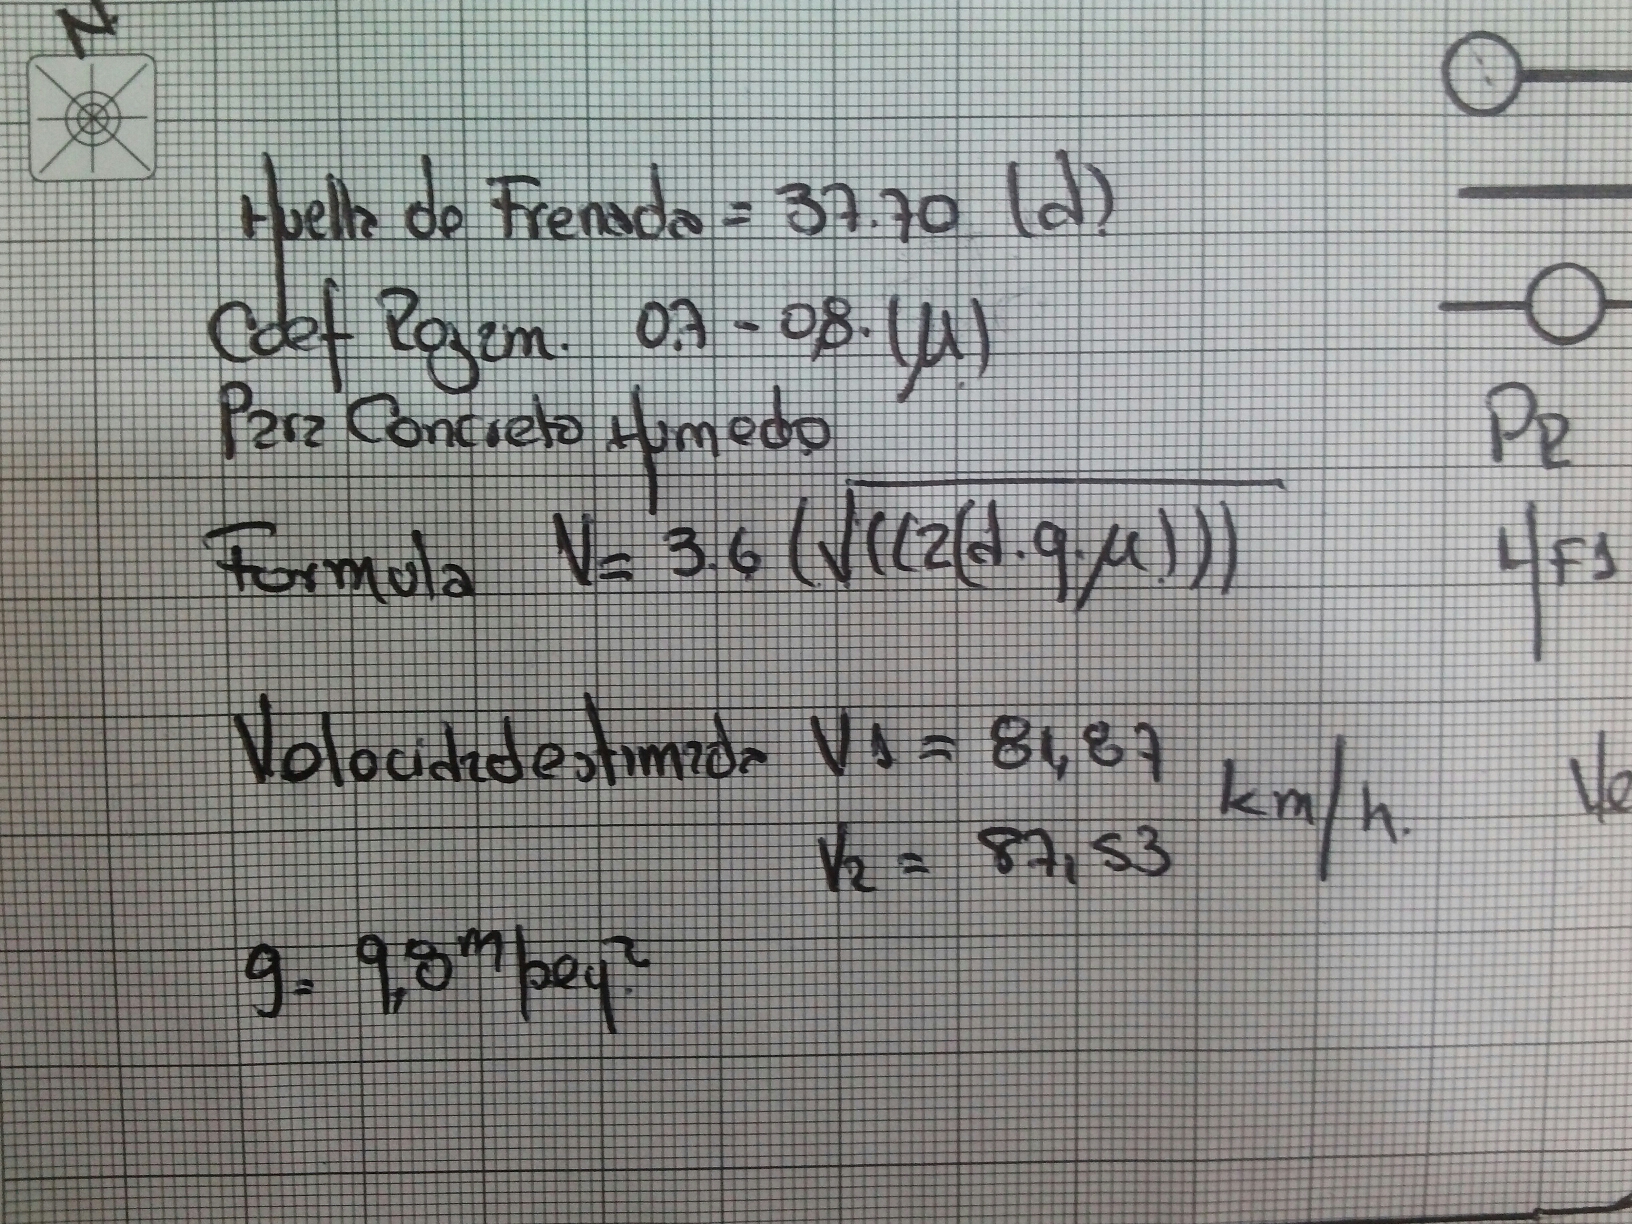 N
Huella de Frenada = 37.70 (d)
Coef Rozam. 0.7 - 0.8. (μ)
Para Concreto Humedo
PR
Formula V = 3.6 (√((2(d.g.μ)))
4F1
Velocidad estimada V1 = 81,87
km/h.
Ve
V2 = 87,53
g = 9,8 m/seg²